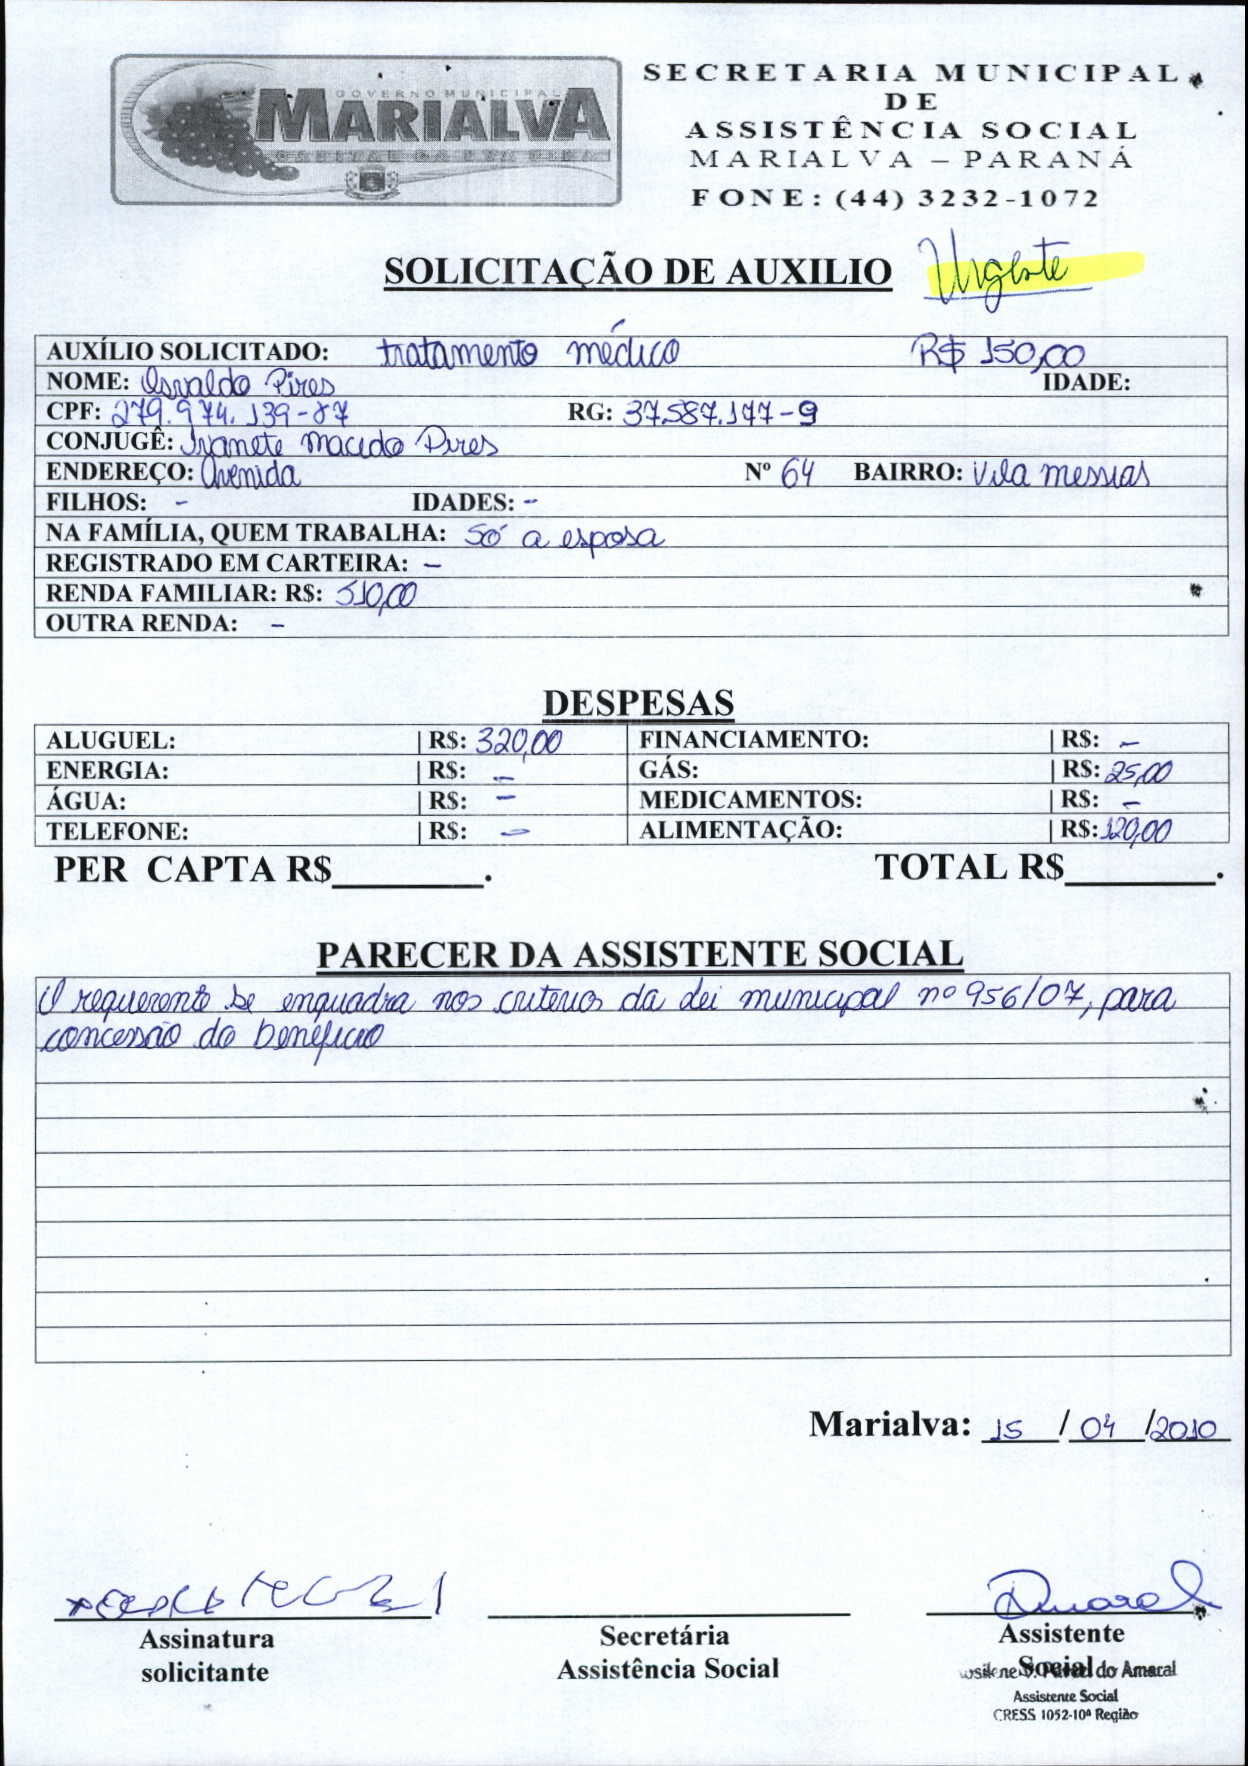 GOVERNO MUNICIPAL
MARIALVA
CAPITAL DA UVA FINA
SECRETARIA MUNICIPAL
DE
ASSISTÊNCIA SOCIAL
MARIALVA – PARANÁ
FONE: (44) 3232-1072
SOLICITAÇÃO DE AUXILIO Urgente
AUXÍLIO SOLICITADO: tratamento médico R$ 150,00
NOME: Osvaldo Pires IDADE:
CPF: 279.974.139-87 RG: 37.587.177-9
CONJUGÊ: Ivanete Macedo Pires
ENDEREÇO: Avenida Nº 64 BAIRRO: Vila Messias
FILHOS: - IDADES: -
NA FAMÍLIA, QUEM TRABALHA: Só a esposa
REGISTRADO EM CARTEIRA: -
RENDA FAMILIAR: R$: 510,00
OUTRA RENDA: -
DESPESAS
ALUGUEL: | R$: 320,00 FINANCIAMENTO: | R$: -
ENERGIA: | R$: - GÁS: | R$: 25,00
ÁGUA: | R$: - MEDICAMENTOS: | R$: -
TELEFONE: | R$: - ALIMENTAÇÃO: | R$: 120,00
PER CAPTA R$________. TOTAL R$________.
PARECER DA ASSISTENTE SOCIAL
O requerente se enquadra nos criterios da Lei municipal nº 956/07, para
concessão do beneficio
Marialva: 15 / 04 / 2010
Amaral
Assinatura Secretária Assistente
solicitante Assistência Social Social
do Amaral
Assistente Social
CRESS 1052-10ª Região